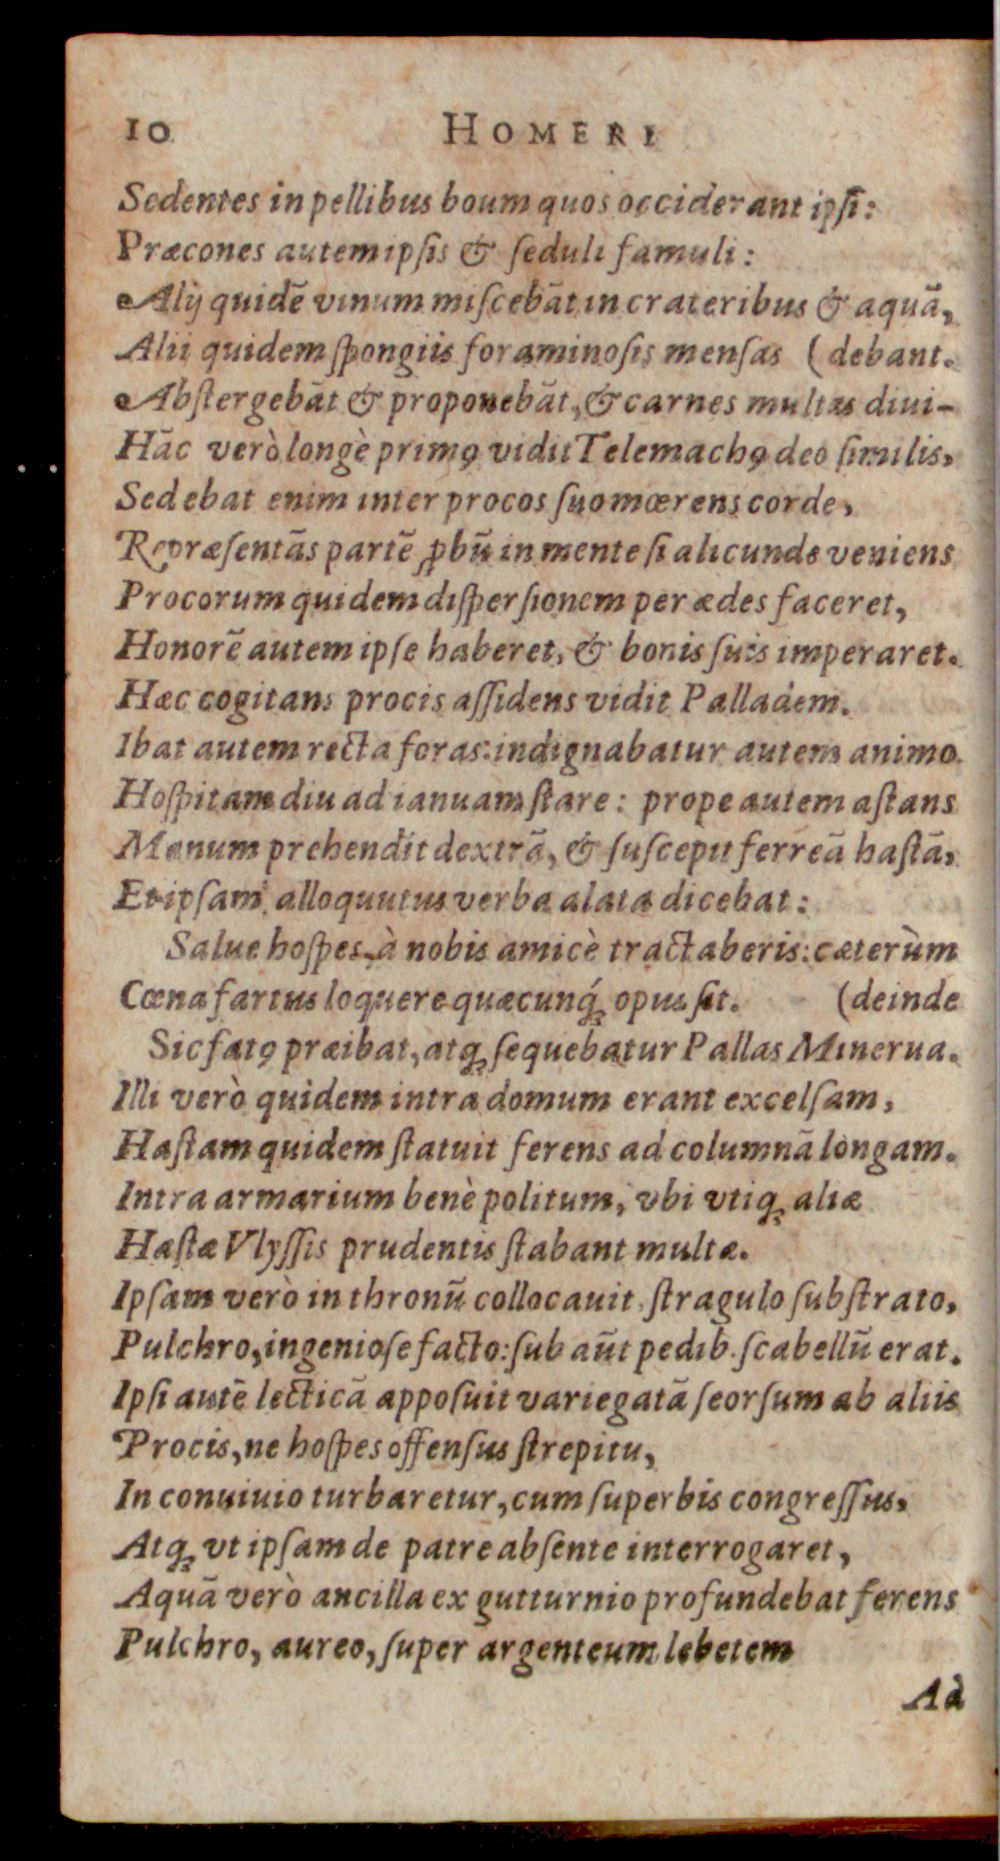 10 HOMERI
Sedentes in pellibus boum quos occiderant ipſi:
Præcones autem ipſis & ſeduli famuli:
Alij quidē vinum miſcebāt in crateribus & aquā,
Alii quidem ſpongiis foraminoſis menſas (debant.
Abſtergebāt & proponebāt, & carnes multas diui-
Hāc verò longè primꝯ vidit Telemachꝯ deo ſimilis,
Sedebat enim inter procos ſuo mœrens corde,
Repræſentās partē ꝓbū in mente ſi alicunde veniens
Procorum quidem diſperſionem per ædes faceret,
Honorē autem ipſe haberet, & bonis ſuis imperaret.
Hæc cogitans procis aſſidens vidit Palladem.
Ibat autem recta foras: indignabatur autem animo
Hoſpitam diu ad ianuam ſtare: prope autem aſtans
Manum prehendit dextrā, & ſuſcepit ferreā haſtā,
Et ipſam alloquutus verba alata dicebat:
Salue hoſpes, à nobis amicè tractaberis: cæterùm
Cœna fartus loquere quæcunq́ꝫ opus ſit. (deinde
Sic fatꝯ præibat, atqꝫ ſequebatur Pallas Minerua.
Illi verò quidem intra domum erant excelſam,
Haſtam quidem ſtatuit ferens ad columnā longam.
Intra armarium benè politum, vbi vtiqꝫ aliæ
Haſtæ Vlyſſis prudentis ſtabant multæ.
Ipſam verò in thronū collocauit, ſtragulo ſubſtrato,
Pulchro, ingenioſe facto: ſub aūt pedib. ſcabellū erat.
Ipſi autē lecticā appoſuit variegatā ſeorſum ab aliis
Procis, ne hoſpes offenſus ſtrepitu,
In conuiuio turbaretur, cum ſuperbis congreſſus,
Atqꝫ vt ipſam de patre abſente interrogaret,
Aquā verò ancilla ex gutturnio profundebat ferens
Pulchro, aureo, ſuper argenteum lebetem
Ad